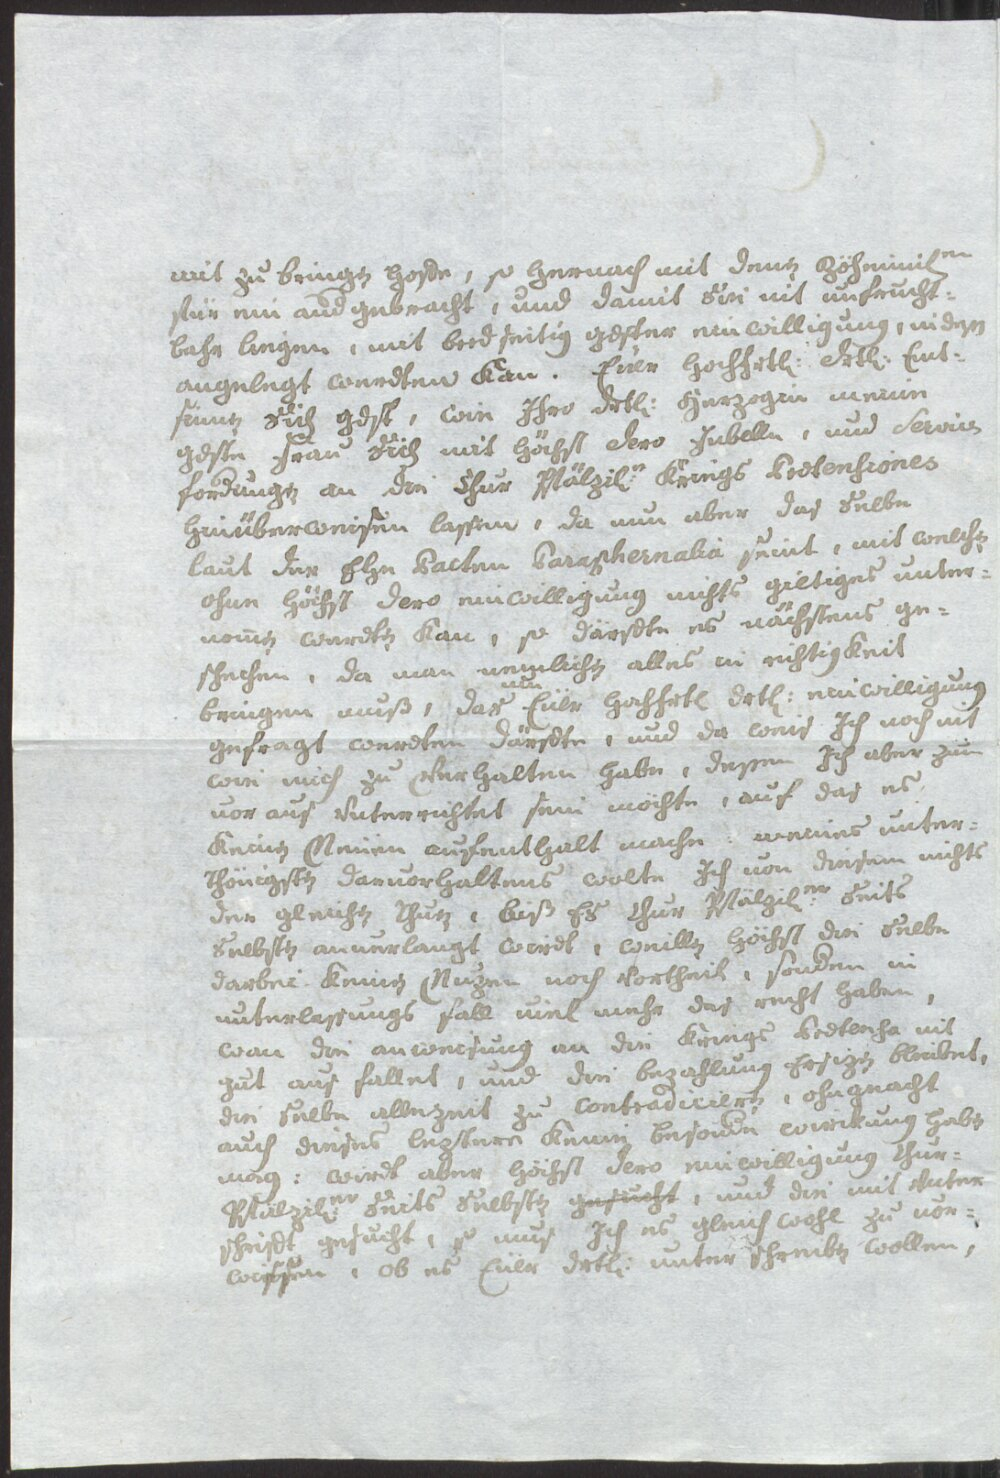 mit zu bringen hoffe, so hernach mit denen Böheimilen
für ein and gebracht, und damit sie nit unfrucht=
bahr liegen, mit beedseitig gdster einwilligung, nideren
angelegt werdten kan. Eüer hochfrtl: drtl: Ent=
sinnen sich gdst, wie Ihro drtl: Herzogin meine
gdste Frau sich mit höchst dero Jubellen, und Servies
forderungen an die Chur Pfälzilen Kriegs Prætensiones
hinüberweisen lassen, da nun aber das selbe
laut der Ehe Pacten Paraphernalia seint, mit welchen
ohne höchst dero einwilligung nichts giltiges unter=
nomen werdten kan, so därffte es nächstens ge=
schechen, da man nemlichen alles in richtigkeit
bringen muß, das umb Eüer hochfrtl drtl: einwilligung
gefragt werdten därffte, und da weis Ich noch nit
wie mich zu verhalten habe, dessen Ich aber zum
vor aus unterrichtet sein möchte, auf das es
keinen Neüen aufenthalt mache: meines unter=
thänigsten darvorhaltens wolte Ich von diesem nichts
der gleichen thuen, biß Es Chur Pfälziler seits
selbsten anverlangt wirdt, weillen höchst die selbe
darbei keinen Nuzen noch vortheil, sondern in
unterlassungs fall viel mehr das recht haben,
wan die anweisung an die Kriegs Prætensa nit
gut aus fallet, und die bezahlung Ersizen bleibet,
die selbe allezeit zu contradicieren, ohngeacht
auch dieses leztere keine besondere wirkung haben
mag: wirdt aber höchst dero einwilligung Chur=
Pfälziler seits selbsten gesucht, und die mit unter
schrifft gesucht, so mus Ich es gleich wohl zu vor=
wissen, ob es Eüer drtl: unterschreiben wollen,